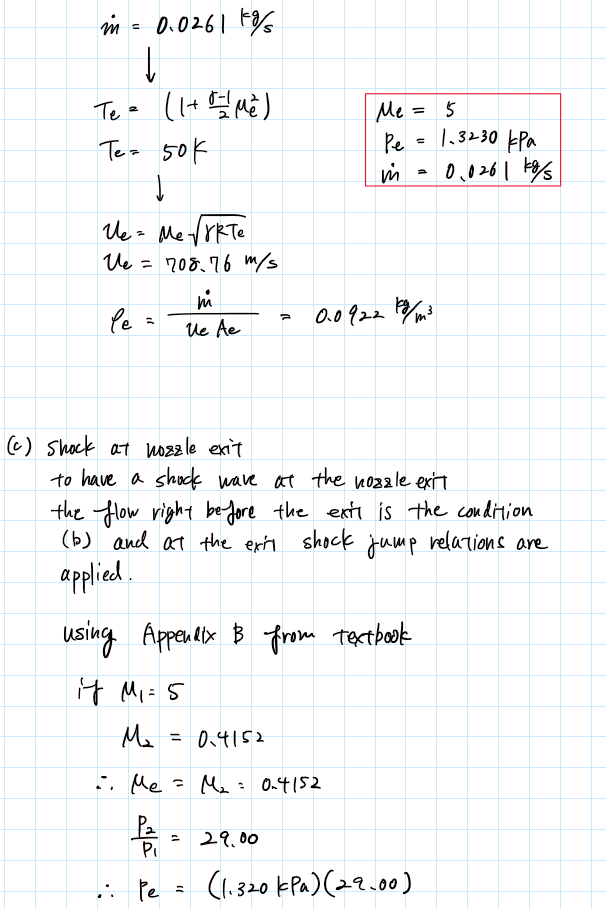 ṁ = 0.0261 kg/s
↓
Te = (1 + (γ-1)/2 Me²)
Te = 50K
↓
Ue = Me √(γRTe)
Ue = 708.76 m/s
ρe = ṁ / (Ue Ae) = 0.0922 kg/m³
Me = 5
Pe = 1.3230 kPa
ṁ = 0.0261 kg/s
(c) Shock at nozzle exit
to have a shock wave at the nozzle exit
the flow right before the exit is the condition
(b) and at the exit shock jump relations are
applied.
using Appendix B from textbook
if M₁ = 5
M₂ = 0.4152
∴ Me = M₂ = 0.4152
P₂/P₁ = 29.00
∴ Pe = (1.320 kPa)(29.00)